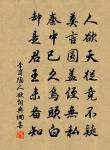 人欲天從竟不疑
莫言圓蓋便無私
秦中已久烏頭白
卻是君王未備知
李商隱人欲詩